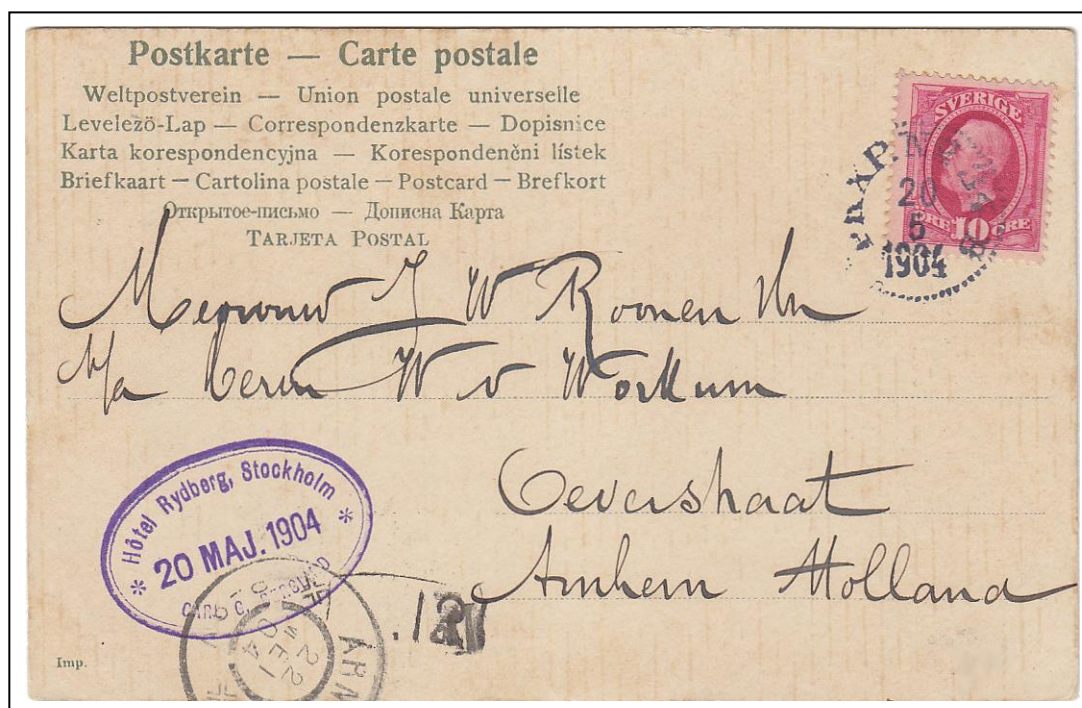 Postkarte — Carte postale
Weltpostverein — Union postale universelle
Levelező-Lap — Correspondenzkarte — Dopisnice
Karta korespondencyjna — Korespondenčni lístek
Briefkaart — Cartolina postale — Postcard — Brefkort
Открытое-письмо — Дописна Карта
TARJETA POSTAL
SVERIGE
ÖRE 10 ÖRE
20
5
1904
Mevrouw J W Roonen
W v Workum
Arnhem Holland
Hôtel Rydberg, Stockholm
20 MAJ. 1904
22
MEI
04
Imp.